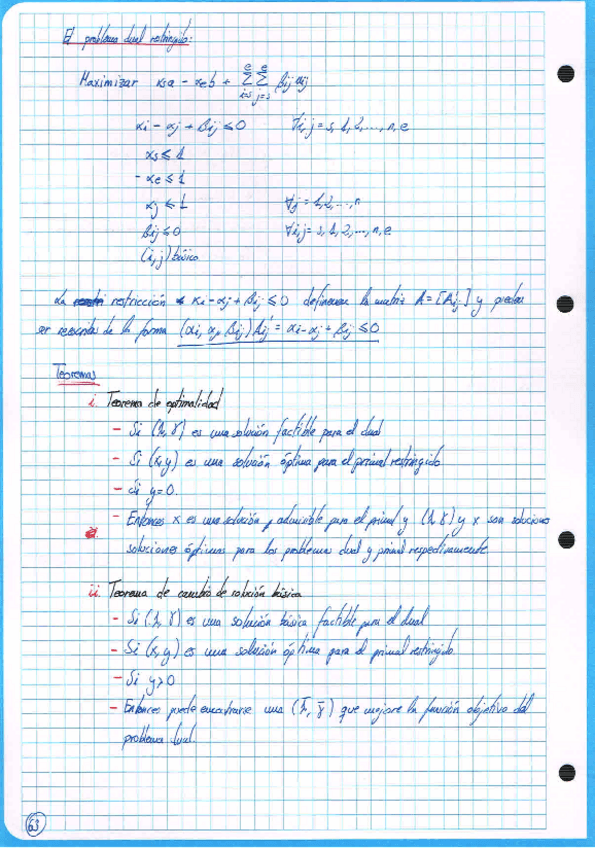 El problema dual restringido:
Maximizar αsa - αeb + Σ(i=s → e) Σ(j=s → e) βij aij
αi - αj + βij ≤ 0 ∀i,j = s, 1, 2, ..., n, e
αs ≤ 1
- αe ≤ 1
αj ≤ 1 ∀j = 1, 2, ..., n
βij ≤ 0 ∀i,j = s, 1, 2, ..., n, e
(i,j) básico
La restricción αi - αj + βij ≤ 0 la matriz A = [Aij] y pueden
ser de la forma (αi, αj, βij) A'ij = αi - αj + βij ≤ 0
Teoremas
i. Teorema de optimalidad
- Si (λ, γ) es una solución factible para el dual
- Si (x,y) es una solución óptima para el primal restringido
- Si y=0.
- Entonces x es una solución admisible para el primal y (λ, γ) y x son soluciones
soluciones óptimas para los problemas dual y primal respectivamente
ii. Teorema de cambio de solución básica
- Si (λ, γ) es una solución básica factible para el dual
- Si (x,y) es una solución óptima para el primal restringido.
- Si y>0
- Entonces puede encontrarse una (λ̄, γ̄) que mejore la función objetivo del
problema dual.
63